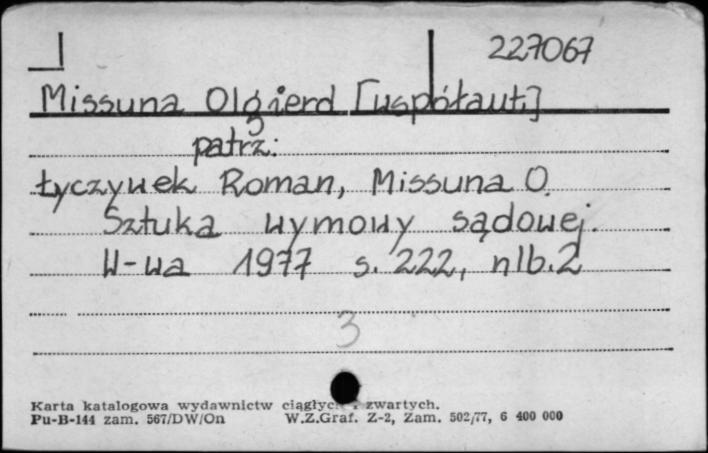 227067
Missuna Olgierd [współaut.]
patrz:
Łyczywek Roman, Missuna O.
Sztuka wymowy sądowej.
W-wa 1977 s. 222, nlb. 2
3
Karta katalogowa wydawnictw ciągłych i zwartych.
Pu-B-144 zam. 567/DW/On W.Z.Graf. Z-2, Zam. 502/77, 6 400 000